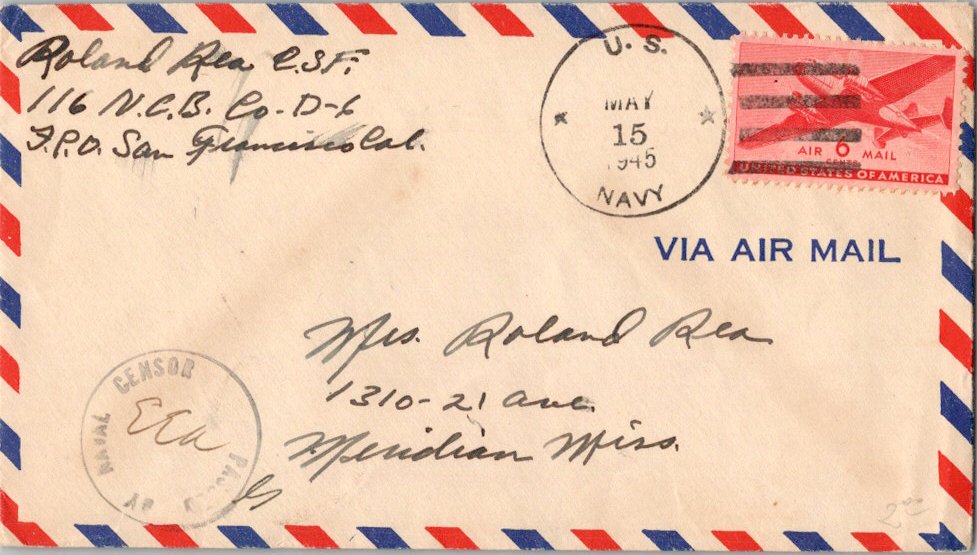 Roland Rea C.S.F.
116 N.C.B. Co-D-6
F.P.O. San Francisco Cal.
U. S.
MAY
15
1945
NAVY
AIR 6 MAIL
CENTS
UNITED STATES OF AMERICA
VIA AIR MAIL
Mrs. Roland Rea
1310-21 Ave.
Meridian Miss.
PASSED BY NAVAL CENSOR